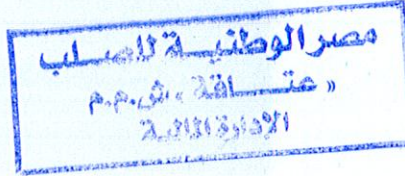 مصر الوطنية للصلب
« عتاقة » ش.م.م
الإدارة المالية